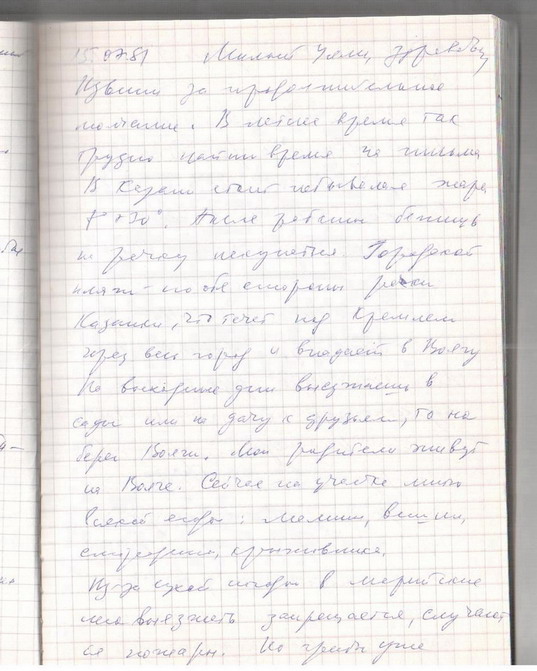 15.07.81 Милый Уели, здравствуй
Извини за продолжительное
молчание. В летнее время так
трудно найти время на письма
В Казани стоит небывалая жара
t° +30°. После работы бежишь
на речку искупаться. Городской
пляж - по обе стороны реки
Казанки, что течет под Кремлем
через весь город и впадает в Волгу
На выходные дни выезжаешь в
сады или на дачу к друзьям, то на
берег Волги. Мои родители живут
на Волге. Сейчас на участке много
всякой ягоды: малины, вишни,
смородины, крыжовника.
Из-за сухой погоды в марийские
леса выезжать запрещается, случают
ся пожары. Но грибы уже